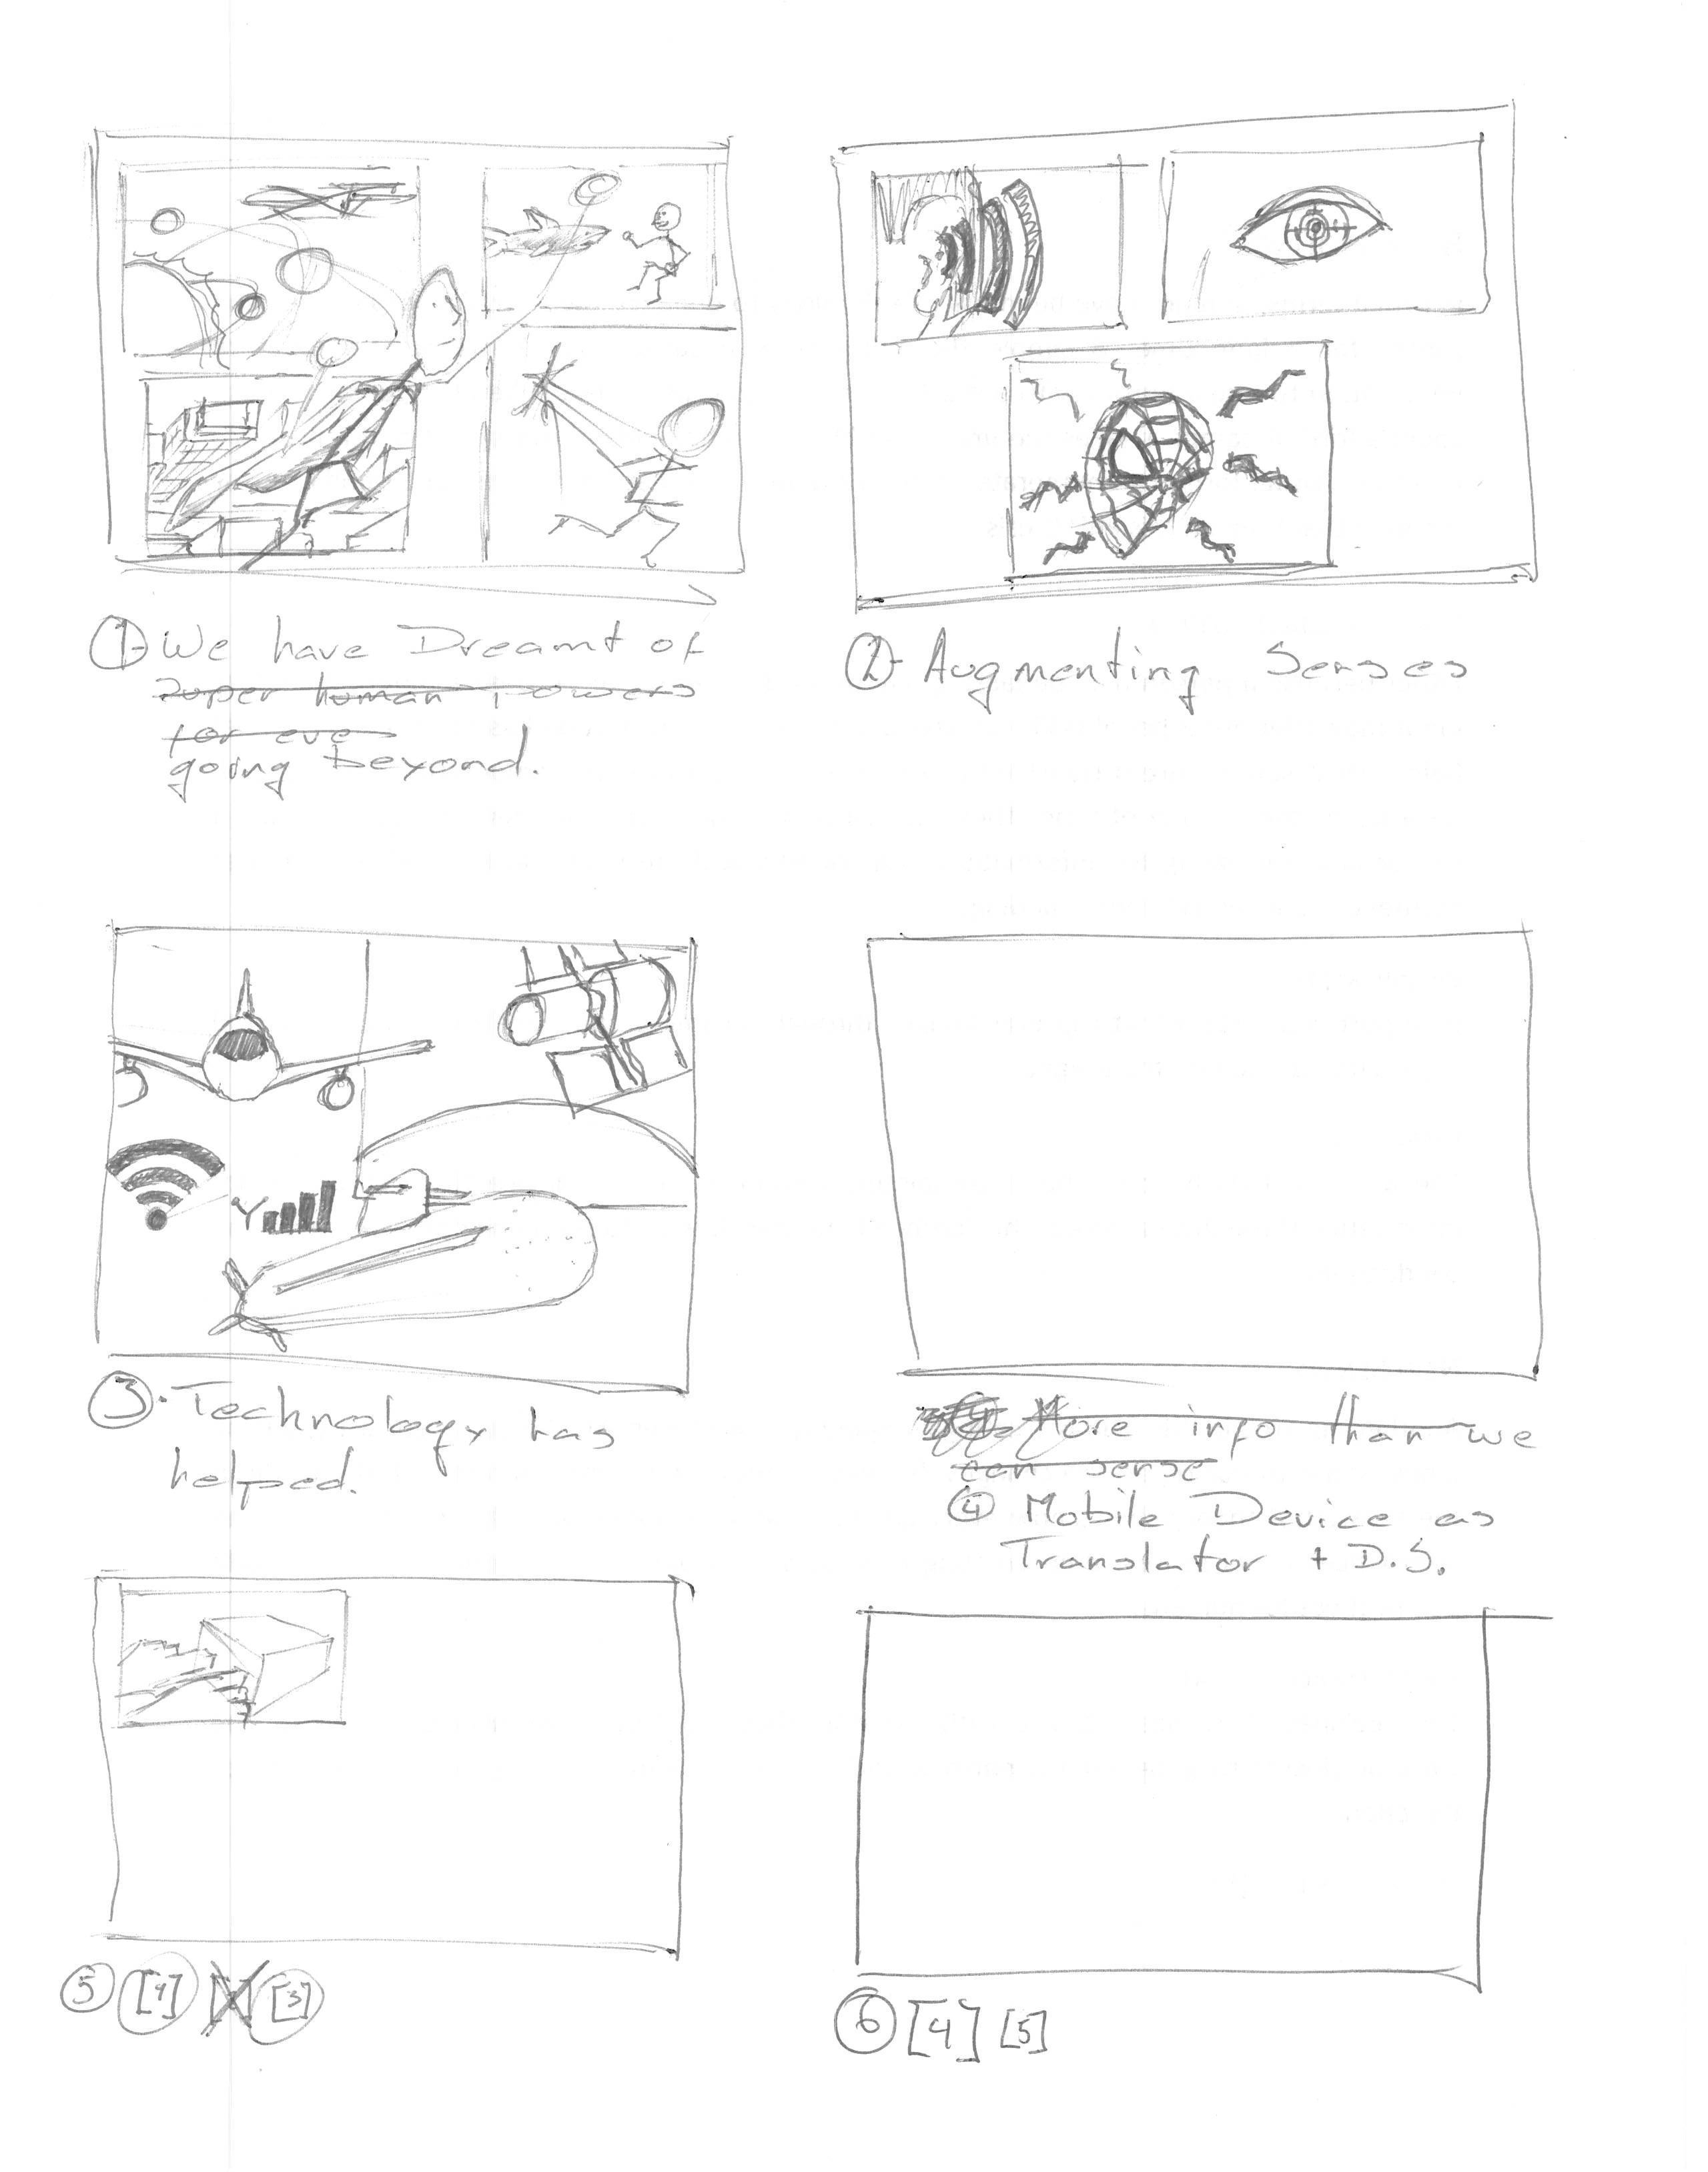 ① - We have Dreamt of
super human powers
for eve
going beyond.
② - Augmenting Senses
③ · Technology has
helped.
More info than we
can sense
④ Mobile Device as
Translator + D.S.
⑤ [4] [3]
⑥ [4] [5]